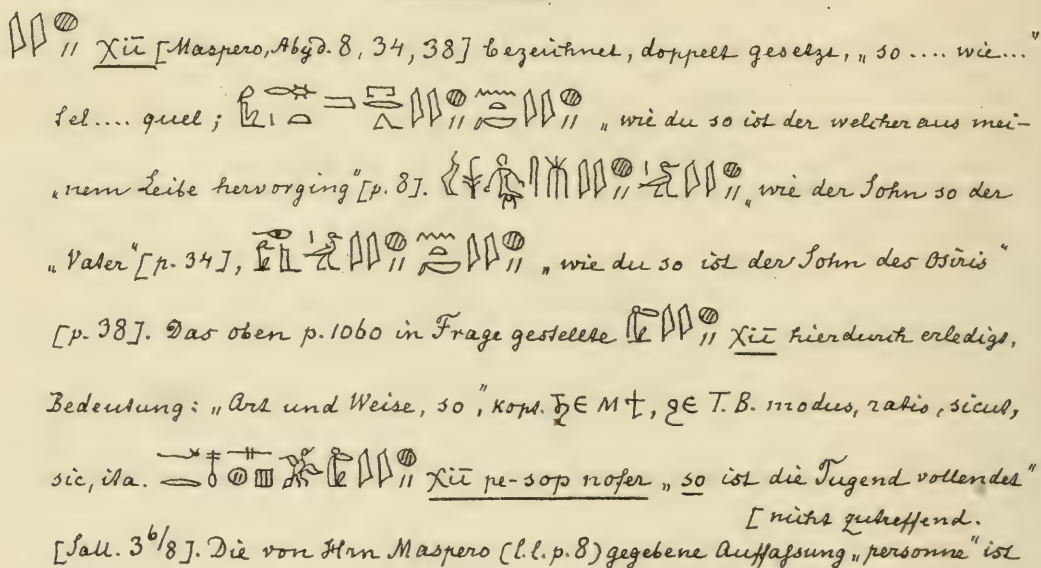 χiī [Maspero, Abyd. 8, 34, 38] bezeichnet, doppelt gesetzt, „so .... wie..."
tel.... quel; „wie du so ist der welcher aus mei-
„nem Leibe hervorging" [p. 8]. „wie der Sohn so der
„Vater" [p. 34], „wie du so ist der Sohn des Osiris"
[p. 38]. Das oben p. 1060 in Frage gestellte χiī hierdurch erledigt,
Bedeutung: „Art und Weise, so", kopt. ϦⲈ M ϯ, ϩⲈ T. B. modus, ratio, sicut,
sic, ita. χiī pe-sop nofer „so ist die Tugend vollendet"
[nicht zutreffend.
[Sall. 3 6/8]. Die von Hrn Maspero (l.l. p. 8) gegebene Auffassung „personne" ist